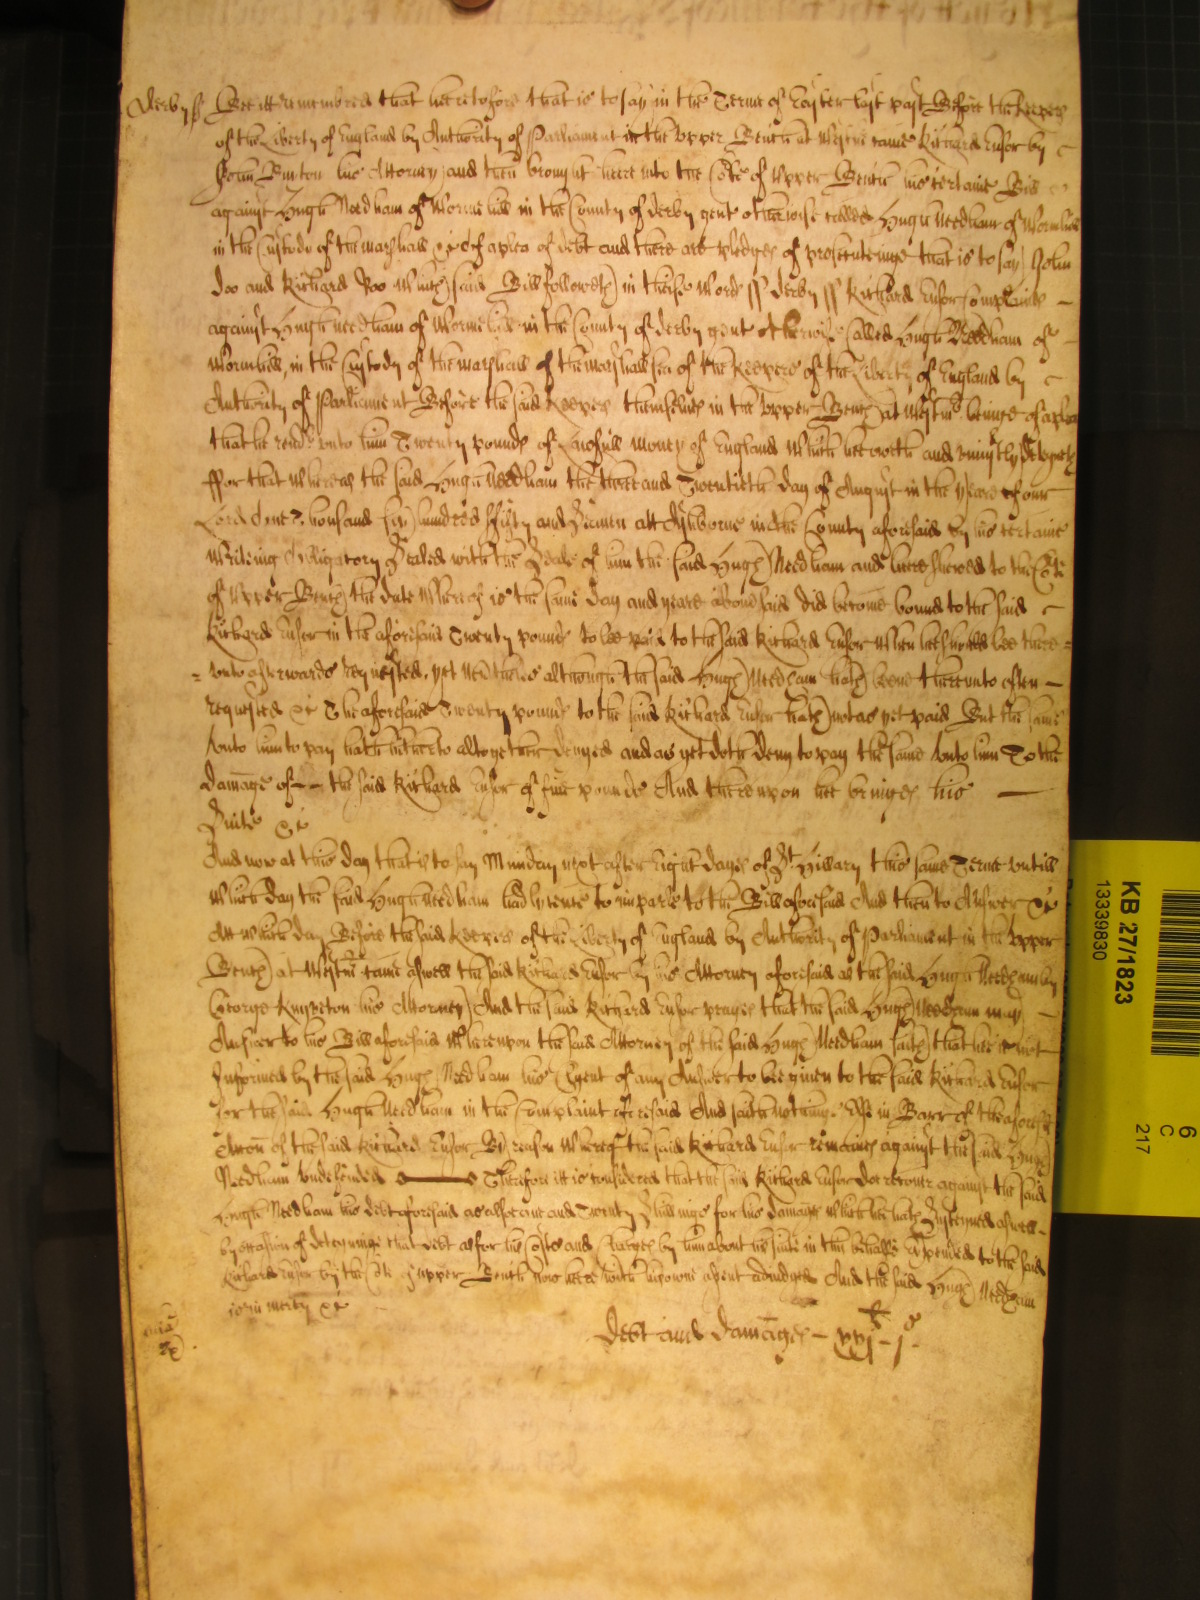 Derby ss Bee itt remembred that heretofore that is to say in the Terme of Easter last past Before the Keepers
of the Liberty of England by Authority of Parliament in the Upper Bench at Westm̃ came Richard Ensor by
John Buxton his Attorney and then brought heere into the Co͠te of Upper Bench his certaine Bill
against Hugh Needham of Wormehill in the County of derby gent otherwise called Hugh Needham of Wormhill
in the Custody of the marshall &c of a plea of debt and there are pledges of prosecuteinge that is to say John
doo and Richard Roo Which said Bill followeth in theise Words ss derby ss Richard Ensor Complaines
against Hugh needham of Wormehill in the County of derby gent otherwise Called Hugh Needham of
Wormhill, in the Custody of the marshall of the marshallsea of the Keepers of the Liberty of England by
Authority of Parliament Before the said Keepers themselves in the Upper Bench at Westm̃ beinge of a plea
that he render unto him Twenty pounds of Lawfull money of England Which hee oweth and uniustly deteyneth
ffor that Whereas the said Hugh Needham the three and Twentieth day of August in the yeare of our
Lord One Thousand six hundred fifty and Seaven att Ashborne in the County aforesaid by his certaine
Writeing Obligatory Sealed with the Seale of him the said Hugh Needham and heere shewed to the Co͠te
of Upper Bench the date Whereof is the same day and yeare abovesaid did become bound to the said
Richard Ensor in the aforesaid Twenty pounds to bee paid to the said Richard Ensor When hee should bee there=
=unto afterwards requested, yet neverthelesse although the said Hugh Needham hath beene thereunto often
requested &c The aforesaid Twenty pounds to the said Richard Ensor hath not as yet paid But the same
unto him to pay hath hitherto altogether denyed and as yet doth deny to pay the same unto him To the
damage of -- the said Richard Ensor of five pounds And thereupon hee bringes his
Suite &c
And now at this day that is to say Munday next after Eight dayes of St Hillary this same Terme untill
Which day the said Hugh Needham had lycence to imparle to the Bill aforesaid And then to Answer &c
Att which day Before the said Keepers of the Liberty of England by Authority of Parliament in the Upper
Bench at Westm̃ came aswell the said Richard Ensor by his Attorney aforesaid as the said Hugh Needham by
George Knyveton his Attorney And the said Richard Ensor prayes that the said Hugh Needham may
Answer to his Bill aforesaid Whereupon the said Attorney of the said Hugh Needham saith that hee is not
Informed by the said Hugh Needham his Clyent of any Answer to bee given to the said Richard Ensor
for the said Hugh Needham in the Complaint aforesaid And saith nothinge Else in Barr of the aforesaid
Action of the said Richard Ensor By reason Whereof the said Richard Ensor remaines against the said Hugh
Needham undefended Therefore itt is considered that the said Richard Ensor doe recover against the said
Hugh Needham his debt aforesaid as alsoe one and Twenty Shillings for his damages which hee hath Susteyned aswell
by occasion of deteyninge that debt as for his Costs and Charges by him about his suite in this behalfe Expended to the said
Richard Ensor by the Co͠te of upper Bench now here with his owne assent adiudged And the said Hugh Needham
is in mercy &c
Debt and Damages - xxj li - j s -